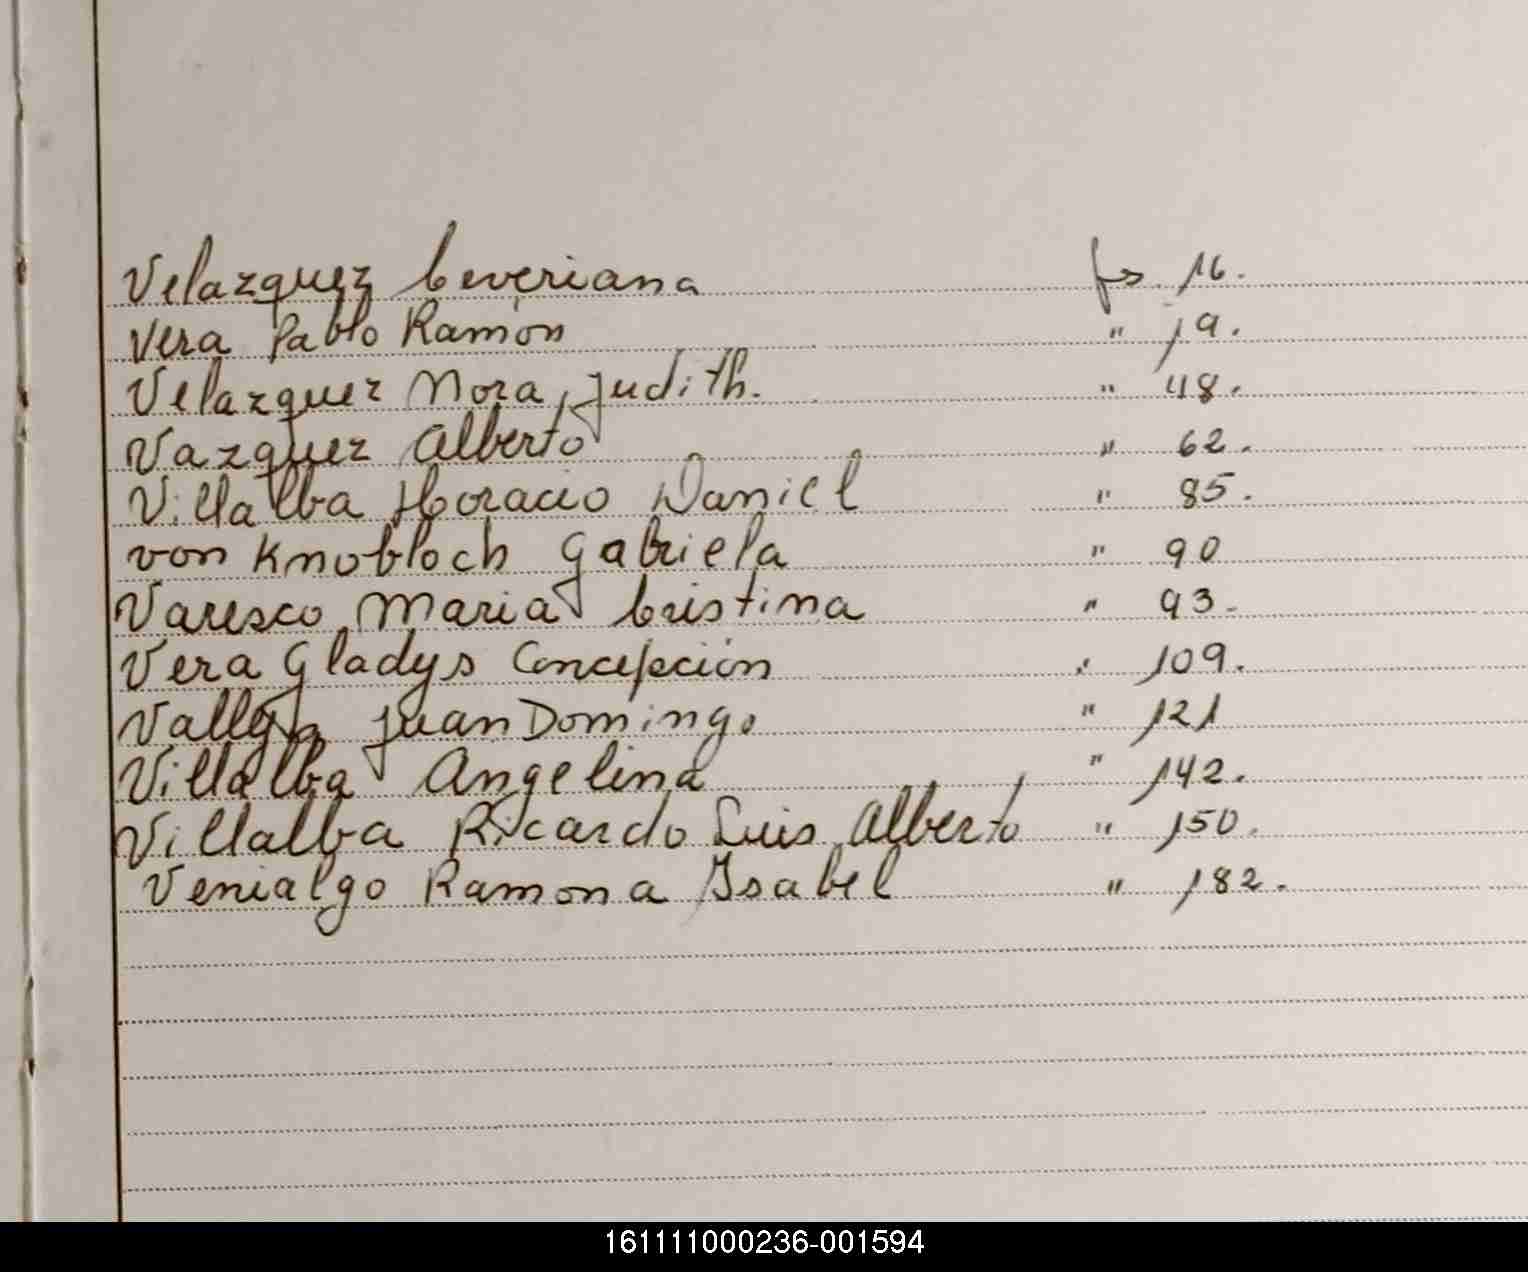 Velazquez Ceveriana fs. 16.
Vera Pablo Ramón " 19.
Velazquez Nora Judith. " 48.
Vazquez Alberto " 62.
Villalba Horacio Daniel " 85.
von Knobloch Gabriela " 90
Varesco Maria Cristina " 93.
Vera Gladys Concepción " 109.
Juan Domingo " 121
Villalba Angelina " 142.
Villalba Ricardo Luis Alberto " 150.
Venialgo Ramona Isabel " 182.
161111000236-001594